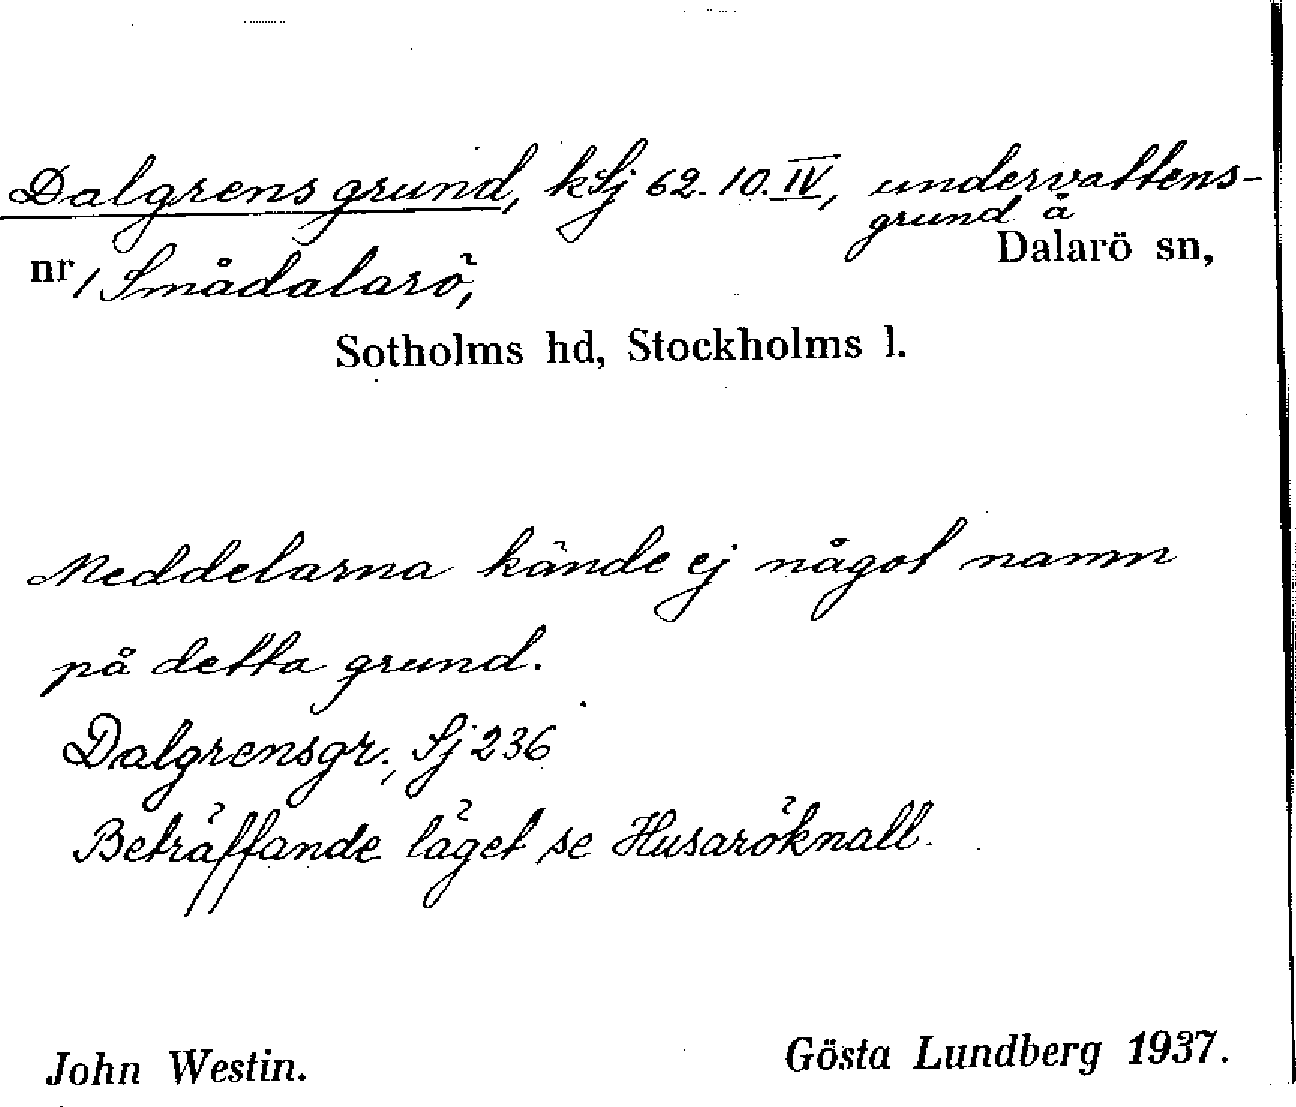 Dalgrens grund, kSj 62.10.IV, undervattens-
grund å
Dalarö sn,
nr 1 Smådalarö,
Sotholms hd, Stockholms l.
Meddelarna kände ej något namn
på detta grund.
Dalgrensgr., Sj 236
Beträffande läget se Husaröknall.
John Westin.
Gösta Lundberg 1937.